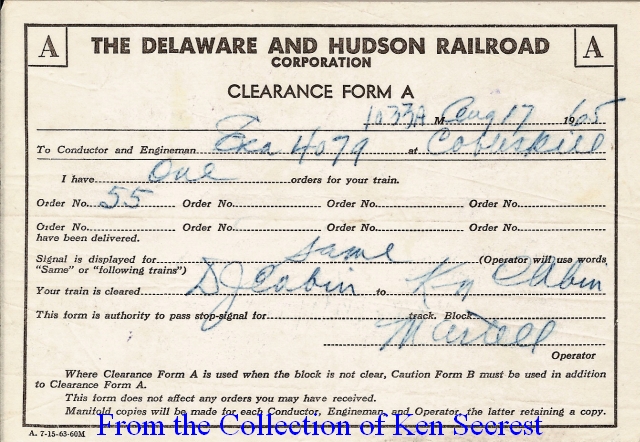 A THE DELAWARE AND HUDSON RAILROAD A
CORPORATION
CLEARANCE FORM A
1033A M Aug 17 1965
To Conductor and Engineman Exa 4079 at Cobleskill
I have One orders for your train.
Order No. 55 Order No. Order No. Order No.
Order No. Order No. Order No. Order No.
have been delivered.
Signal is displayed for same (Operator will use words
"Same" or "following trains")
Your train is cleared DJ Cabin to Cabin
This form is authority to pass stop-signal for track. Block
Martell
Operator
Where Clearance Form A is used when the block is not clear, Caution Form B must be used in addition
to Clearance Form A.
This form does not affect any orders you may have received.
Manifold copies will be made for each Conductor, Engineman, and Operator, the latter retaining a copy.
A. 7-15-63-60M
From the Collection of Ken Secrest